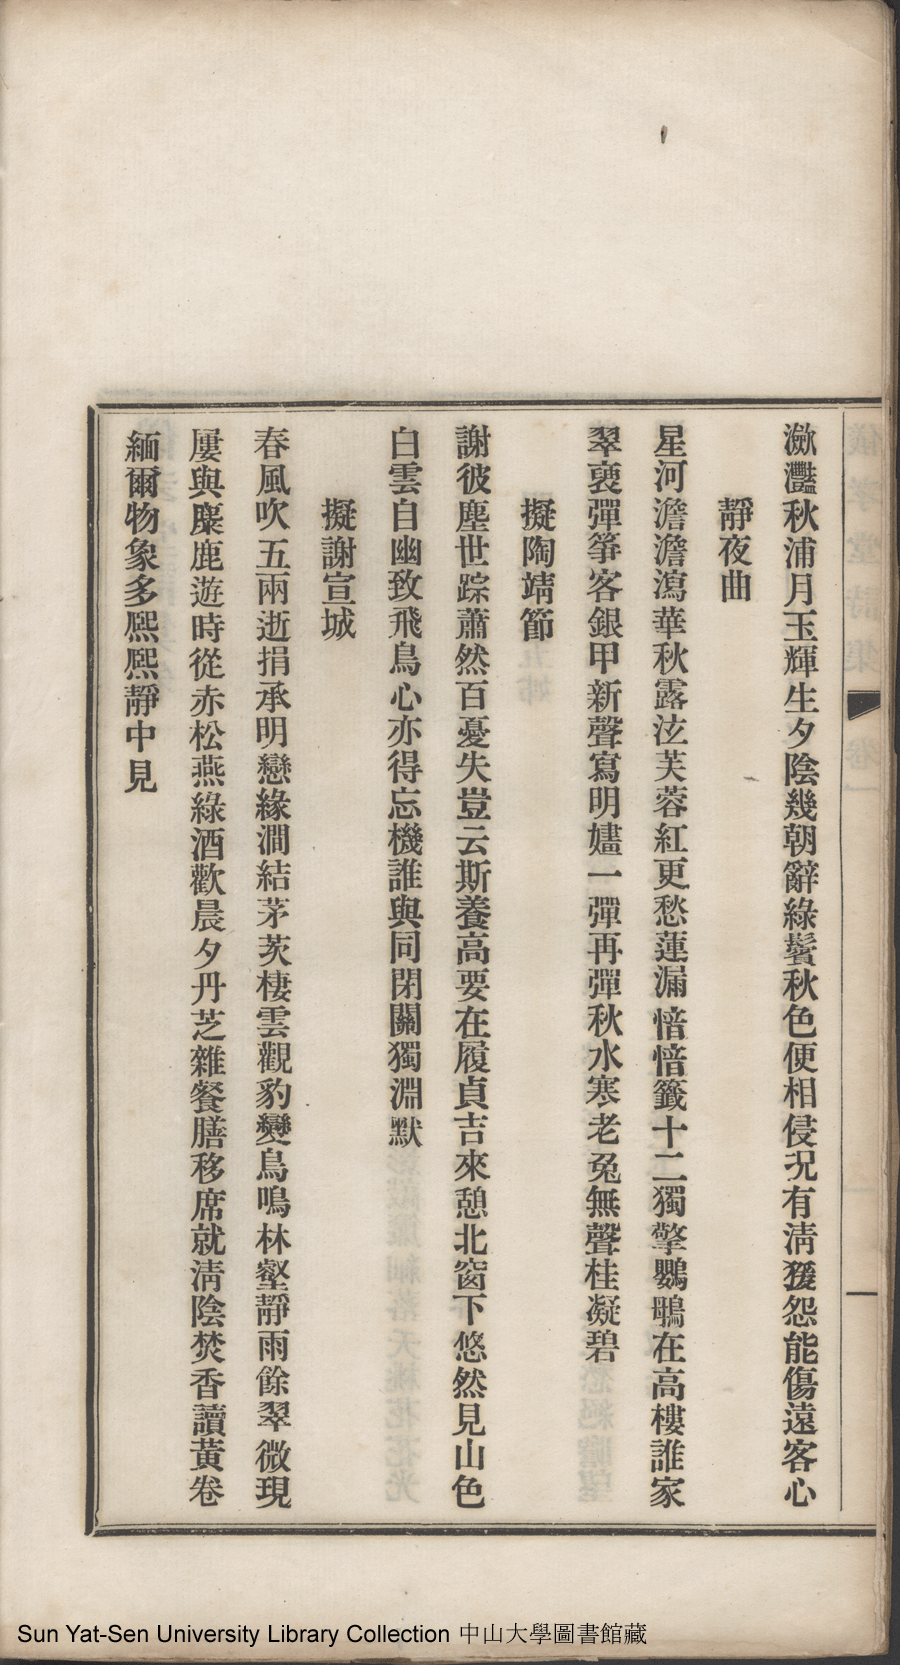 瀲灩秋浦月玉輝生夕陰幾朝辭綠鬢秋色便相侵况有淸猨怨能傷遠客心
靜夜曲
星河澹澹瀉華秋露泫芙蓉紅更愁蓮漏愔愔籤十二獨擎鸚鵡在高樓誰家
翠裒彈箏客銀甲新聲寫明嫿一彈再彈秋水寒老兔無聲桂凝碧
擬陶靖節
謝彼塵世踪蕭然百憂失豈云斯養高要在履貞吉來憩北窗下悠然見山色
白雲自幽致飛鳥心亦得忘機誰與同閉關獨淵默
擬謝宣城
春風吹五兩逝捐承明戀緣澗結茅茨棲雲觀豹變鳥鳴林壑靜雨餘翠微現
屢與麋鹿遊時從赤松燕綠酒歡晨夕丹芝雜餐膳移席就淸陰焚香讀黃卷
緬爾物象多熙熙靜中見
Sun Yat-Sen University Library Collection 中山大學圖書館藏